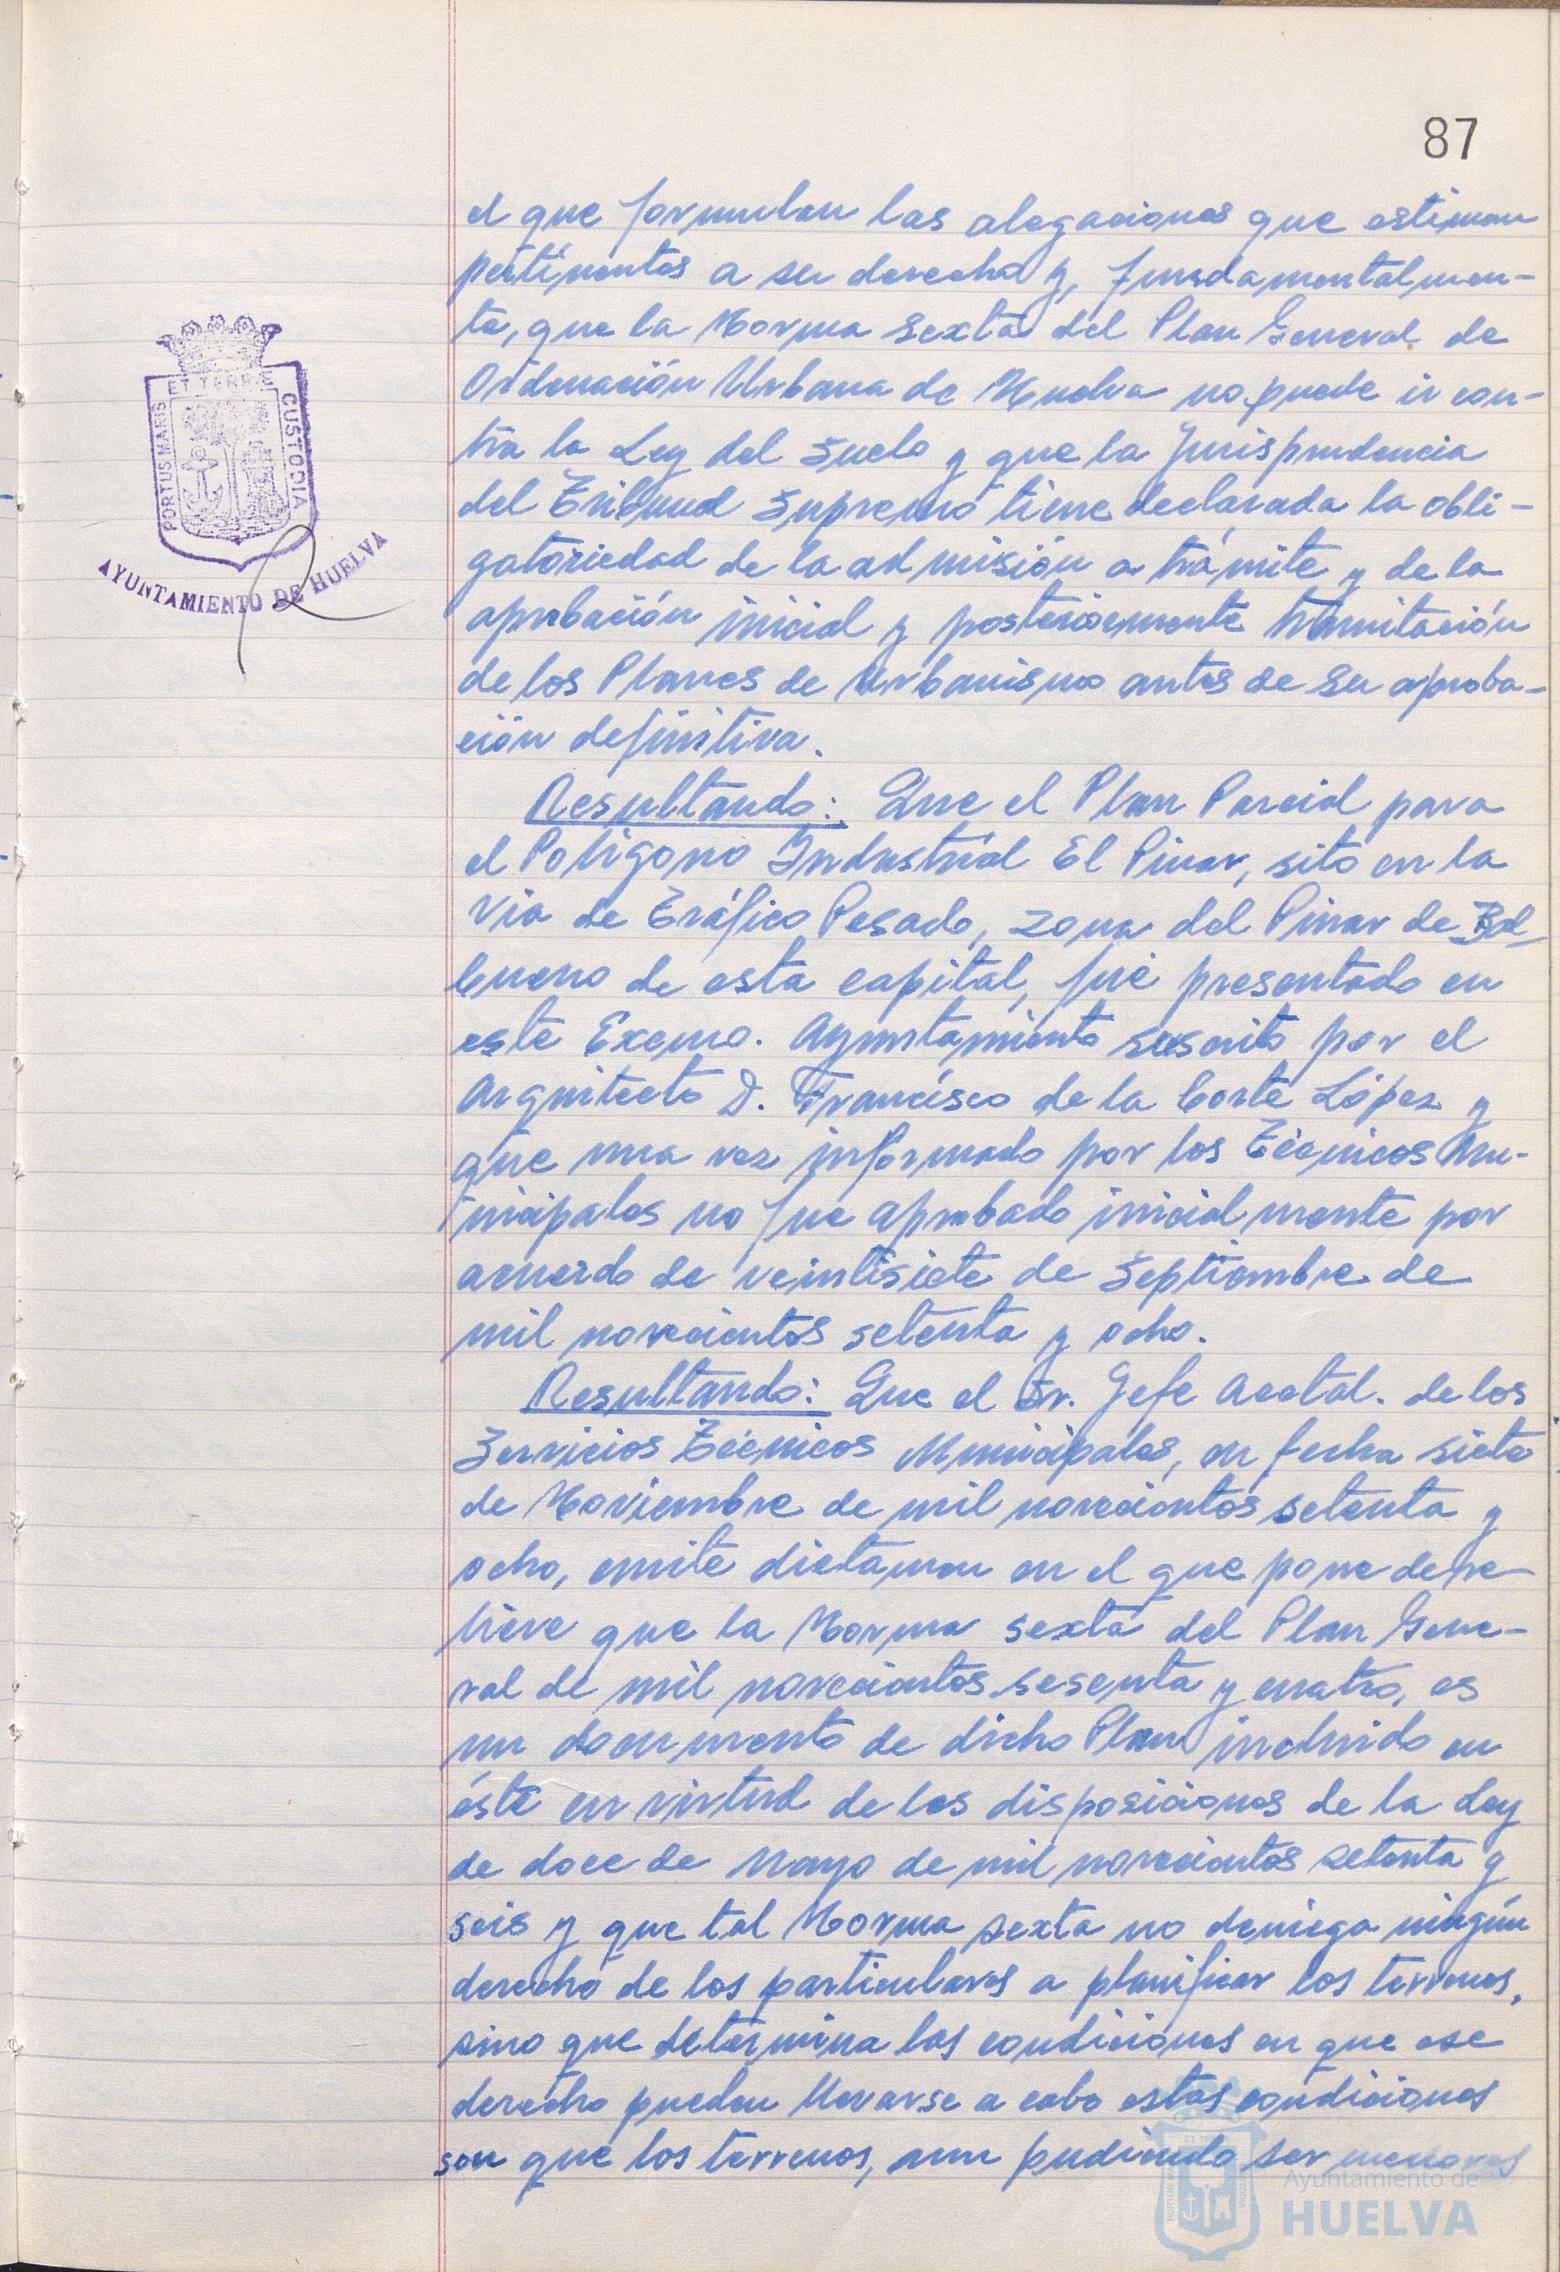 87
el que formulan las alegaciones que estiman
pertinentes a su derecho y, fundamentalmen-
te, que la Norma Sexta del Plan General de
Ordenación Urbana de Huelva no puede ir con-
tra la Ley del Suelo y que la Jurisprudencia
del Tribunal Supremo tiene declarada la obli-
gatoriedad de la admisión a trámite y de la
aprobación inicial y posteriormente tramitación
de los Planes de Urbanismo antes de su aproba-
ción definitiva.
Resultando: Que el Plan Parcial para
el Polígono Industrial El Pinar, sito en la
Vía de Tráfico Pesado, zona del Pinar de Bal-
bueno de esta capital, fué presentado en
este Excmo. Ayuntamiento suscrito por el
Arquitecto D. Francisco de la Corte López y
que una vez informado por los Técnicos Mu-
nicipales no fue aprobado inicialmente por
acuerdo de veintisiete de Septiembre de
mil novecientos setenta y ocho.
Resultando: Que el Sr. Jefe Acctal. de los
Servicios Técnicos Municipales, en fecha siete
de Noviembre de mil novecientos setenta y
ocho, emite dictamen en el que pone de re-
lieve que la Norma sexta del Plan Gene-
ral de mil novecientos sesenta y cuatro, es
un documento de dicho Plan incluido en
éste en virtud de las disposiciones de la Ley
de doce de Mayo de mil novecientos setenta y
seis y que tal Norma sexta no deniega ningún
derecho de los particulares a planificar los terrenos,
sino que determina las condiciones en que ese
derecho pueden llevarse a cabo estas condiciones
son que los terrenos, aun pudiendo ser menores
ET TERRE
PORTUS MARIS
CUSTODIA
AYUNTAMIENTO DE HUELVA
Ayuntamiento de
HUELVA